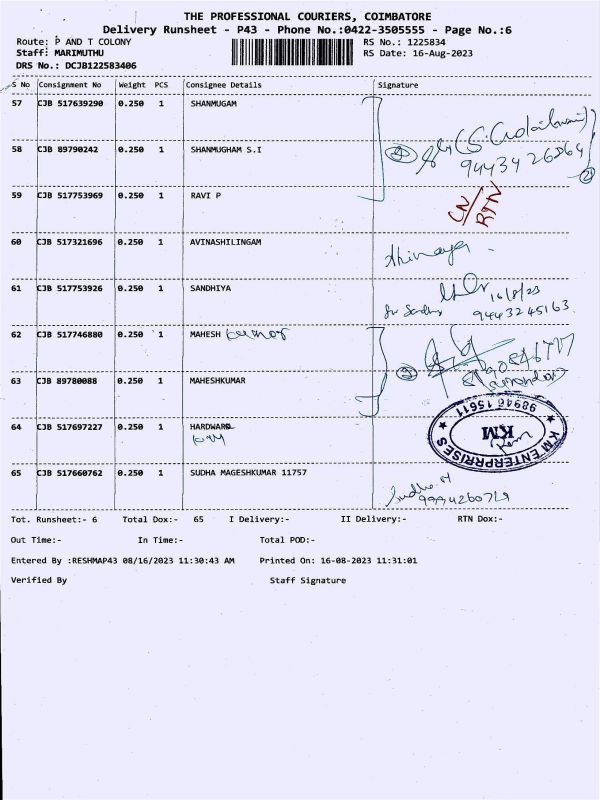 THE PROFESSIONAL COURIERS, COIMBATORE
Delivery Runsheet - P43 - Phone No.:0422-3505555 - Page No.:6
Route: P AND T COLONY RS No.: 1225834
Staff: MARIMUTHU RS Date: 16-Aug-2023
DRS No.: DCJB122583406
S No Consignment No Weight PCS Consignee Details Signature
57 CJB 517639290 0.250 1 SHANMUGAM
58 CJB 89790242 0.250 1 SHANMUGHAM S.I
9443426864
59 CJB 517753969 0.250 1 RAVI P
RTN
60 CJB 517321696 0.250 1 AVINASHILINGAM
61 CJB 517753926 0.250 1 SANDHIYA
16/8/23
9443245163
62 CJB 517746880 0.250 1 MAHESH kumar
63 CJB 89780088 0.250 1 MAHESHKUMAR
64 CJB 517697227 0.250 1 HARDWARE
KM ENTERPRISES
KM
98946 15611
65 CJB 517660762 0.250 1 SUDHA MAGESHKUMAR 11757
Sudha M
9994260719
Tot. Runsheet:- 6 Total Dox:- 65 I Delivery:- II Delivery:- RTN Dox:-
Out Time:- In Time:- Total POD:-
Entered By :RESHMAP43 08/16/2023 11:30:43 AM Printed On: 16-08-2023 11:31:01
Verified By Staff Signature